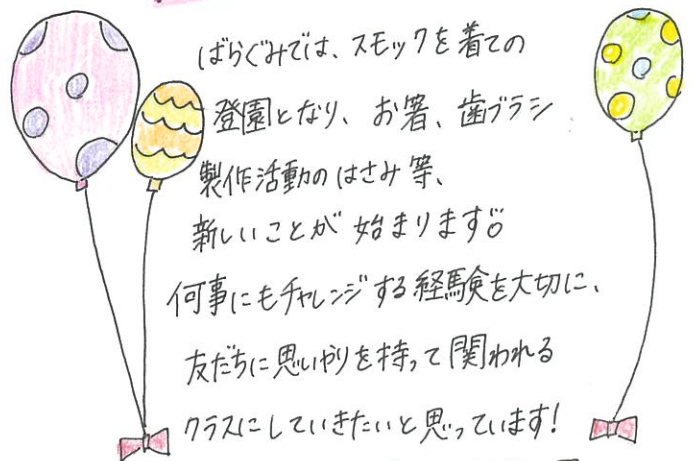 ばらぐみでは、スモックを着ての
登園となり、お箸、歯ブラシ
製作活動のはさみ等、
新しいことが始まります。
何事にもチャレンジする経験を大切に、
友だちに思いやりを持って関われる
クラスにしていきたいと思っています!